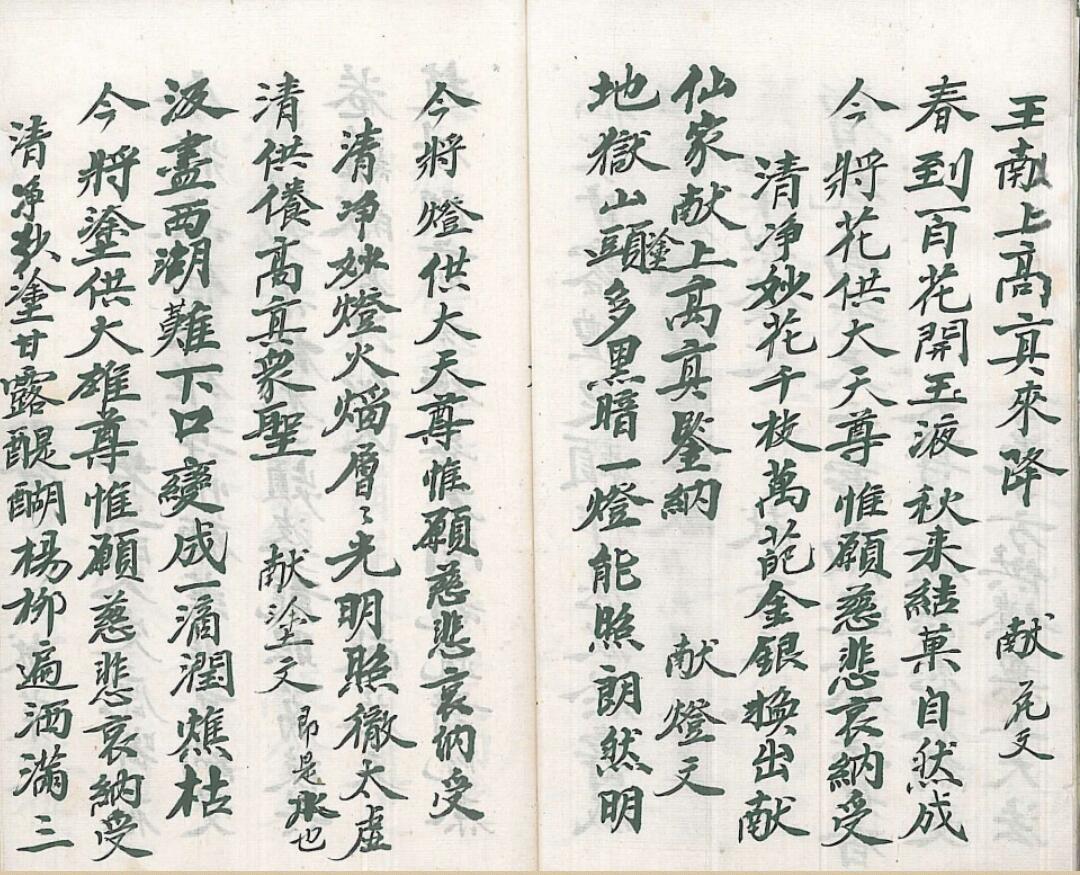 王献上高真來降　献花文
春到百花開玉液秋来結菓自然成
今將花供大天尊惟願慈悲哀納受
清净妙花千枝萬葩金銀換出献
仙家献上高真鑒納　献燈文
塗
地獄山頭多黑暗一燈能照朗然明
今將燈供大天尊惟願慈悲哀納受
清净妙燈火焰層〻光明照徹太虛
清供養高真衆聖　献塗文即是水也
汲盡西湖難下口變成一滴潤燋枯
今將塗供大雄尊惟願慈悲哀納受
清净妙塗甘露醍醐楊柳遍洒滿三